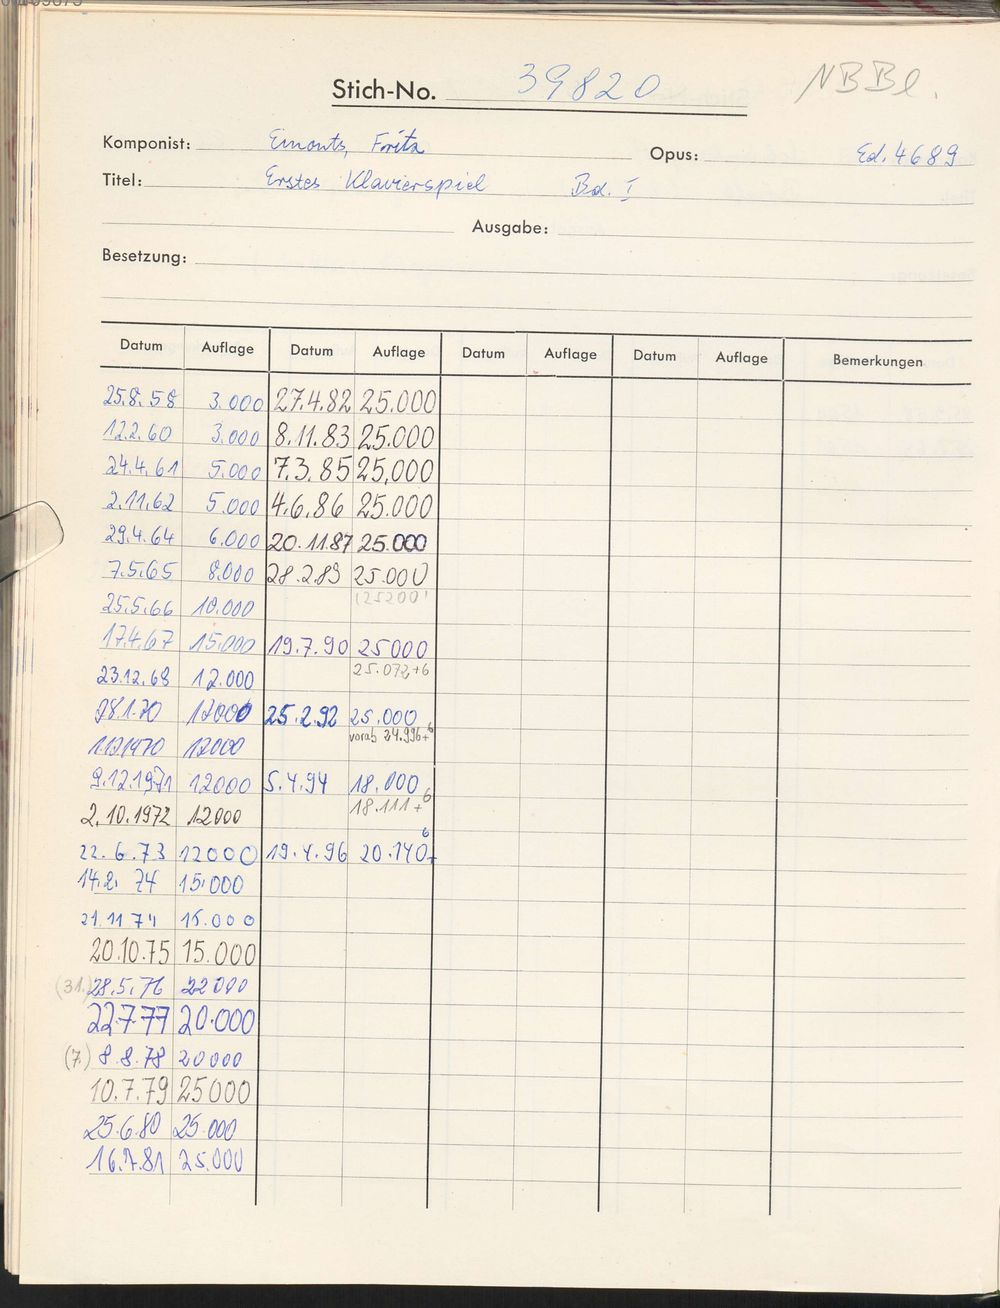 Stich-No. 39820 NBBl.
Komponist: Emonts, Fritz Opus: Ed. 4689
Titel: Erstes Klavierspiel Bd. I
Ausgabe:
Besetzung:
Datum Auflage Datum Auflage Datum Auflage Datum Auflage Bemerkungen
25.8.58 3.000 27.4.82 25.000
12.2.60 3.000 8.11.83 25.000
24.4.61 5.000 7.3.85 25.000
2.11.62 5.000 4.6.86 25.000
29.4.64 6.000 20.11.87 25.000
7.5.65 8.000 28.2.89 25.000
25.5.66 10.000 (25200)
17.4.67 15.000 19.7.90 25000
23.12.68 12.000 25.072+6
28.1.70 12000 25.2.92 25.000
1.12.1970 12000 vorab 24.996+6
9.12.1971 12000 5.4.94 18.000
2.10.1972 12000 18.111+6
22.6.73 12000 19.4.96 20.140+6
14.2.74 15.000
21.11 74 15.000
20.10.75 15.000
(31.) 28.5.76 22000
22.7.77 20.000
(7.) 8.8.78 20000
10.7.79 25000
25.6.80 25.000
16.7.81 25.000